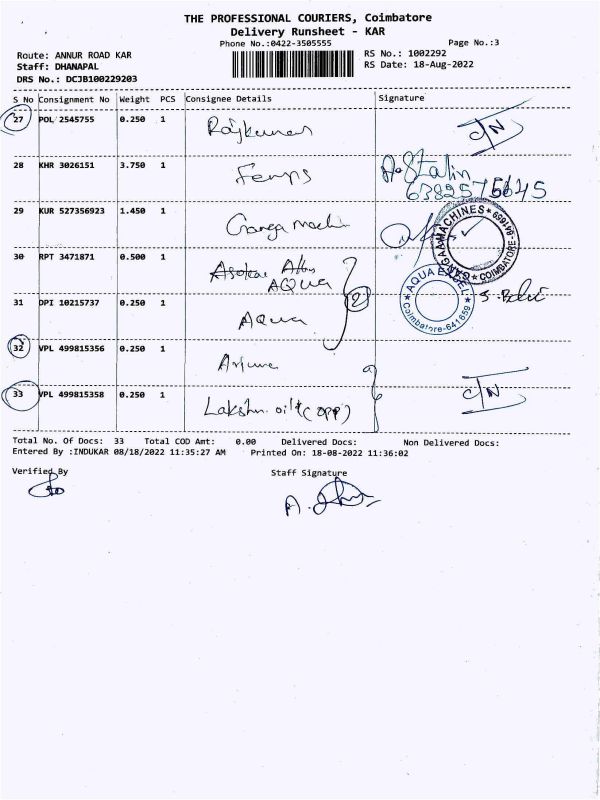 THE PROFESSIONAL COURIERS, Coimbatore
Delivery Runsheet - KAR
Phone No.:0422-3505555
Page No.:3
Route: ANNUR ROAD KAR
RS No.: 1002292
Staff: DHANAPAL
RS Date: 18-Aug-2022
DRS No.: DCJB100229203
S No Consignment No Weight PCS Consignee Details Signature
27 POL 2545755 0.250 1 Rajkumar C/N
28 KHR 3026151 3.750 1 Femps A. Stalin
6382575645
29 KUR 527356923 1.450 1 Ganga machin
GANGAA MACHINES * COIMBATORE - 641659 *
30 RPT 3471871 0.500 1
AQUA
AQUA EXCEL * Coimbatore-641659 *
31 DPI 10215737 0.250 1 Aqua 2
32 VPL 499815356 0.250 1 Arjun
33 VPL 499815358 0.250 1 Lakshmi oil (opp) C/N
Total No. Of Docs: 33 Total COD Amt: 0.00 Delivered Docs: Non Delivered Docs:
Entered By :INDUKAR 08/18/2022 11:35:27 AM Printed On: 18-08-2022 11:36:02
Verified By Staff Signature